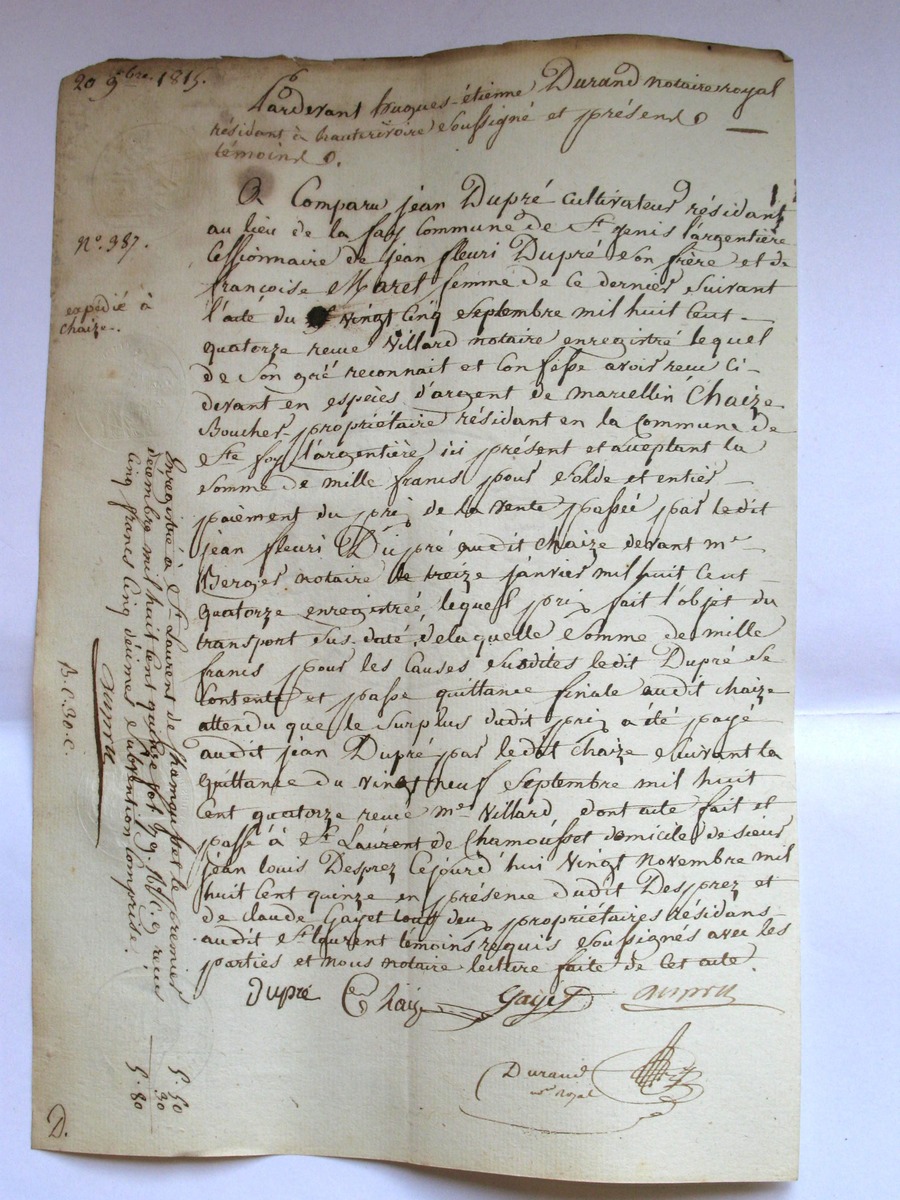 20 9bre. 1815.
Pardevant hugues-étienne Durand notaire royal
résidant à hauterivoire soussigné et présend
témoins.
A Comparu jean Dupré cultivateur résidant
au lieu de la fay Commune de St genis l'argentière
Cessionnaire de jean fleuri Dupré son frère et de
françoise Maret femme de Ce dernier suivant
l'acte du vingt Cinq septembre mil huit Cent
quatorze reçu Villard notaire enregistré lequel
de son gré reconnait et Confesse avoir reçu Ci-
devant en espèces d'argent de marcellin Chaize
Boucher propriétaire résidant en la Commune de
Ste foy l'argentière ici présent et acceptant la
somme de mille francs pour solde et entier
paiement du prix de la vente passée par ledit
jean fleuri Dupré audit Chaize devant me
Berger notaire le treize janvier mil huit Cent
quatorze enregistrée, lequel prix fait l'objet du
transport sus-daté, de laquelle somme de mille
francs pour les Causes susdites ledit Dupré se
Contente et passe quittance finale audit Chaize
attendu que le surplus dudit prix a été payé
audit jean Dupré par ledit Chaize suivant la
quittance du vingt neuf septembre mil huit
Cent quatorze reçue me Villard, dont acte fait et
passé à St Laurent de Chamousset domicile de sieur
jean louis Desprez Cejourd'hui vingt Novembre mil
huit Cent quinze en présence dudit Desprez et
de claude Gayet tous deux propriétaires résidans
audit St laurent témoins requis soussignés avec les
parties et nous notaire lecture faite de Cet acte.
Dupré Chaize Gayet
Durand
nre royal
No. 387.
expédié à
Chaize.
Enregistré à St Laurent de Chamousset le premier
décembre mil huit cent quinze fol. 99. R. C. 9 reçu
Cinq francs Cinq décimes subvention Comprise.
B. C. 30. C.
5. 50
30
5. 80
D.